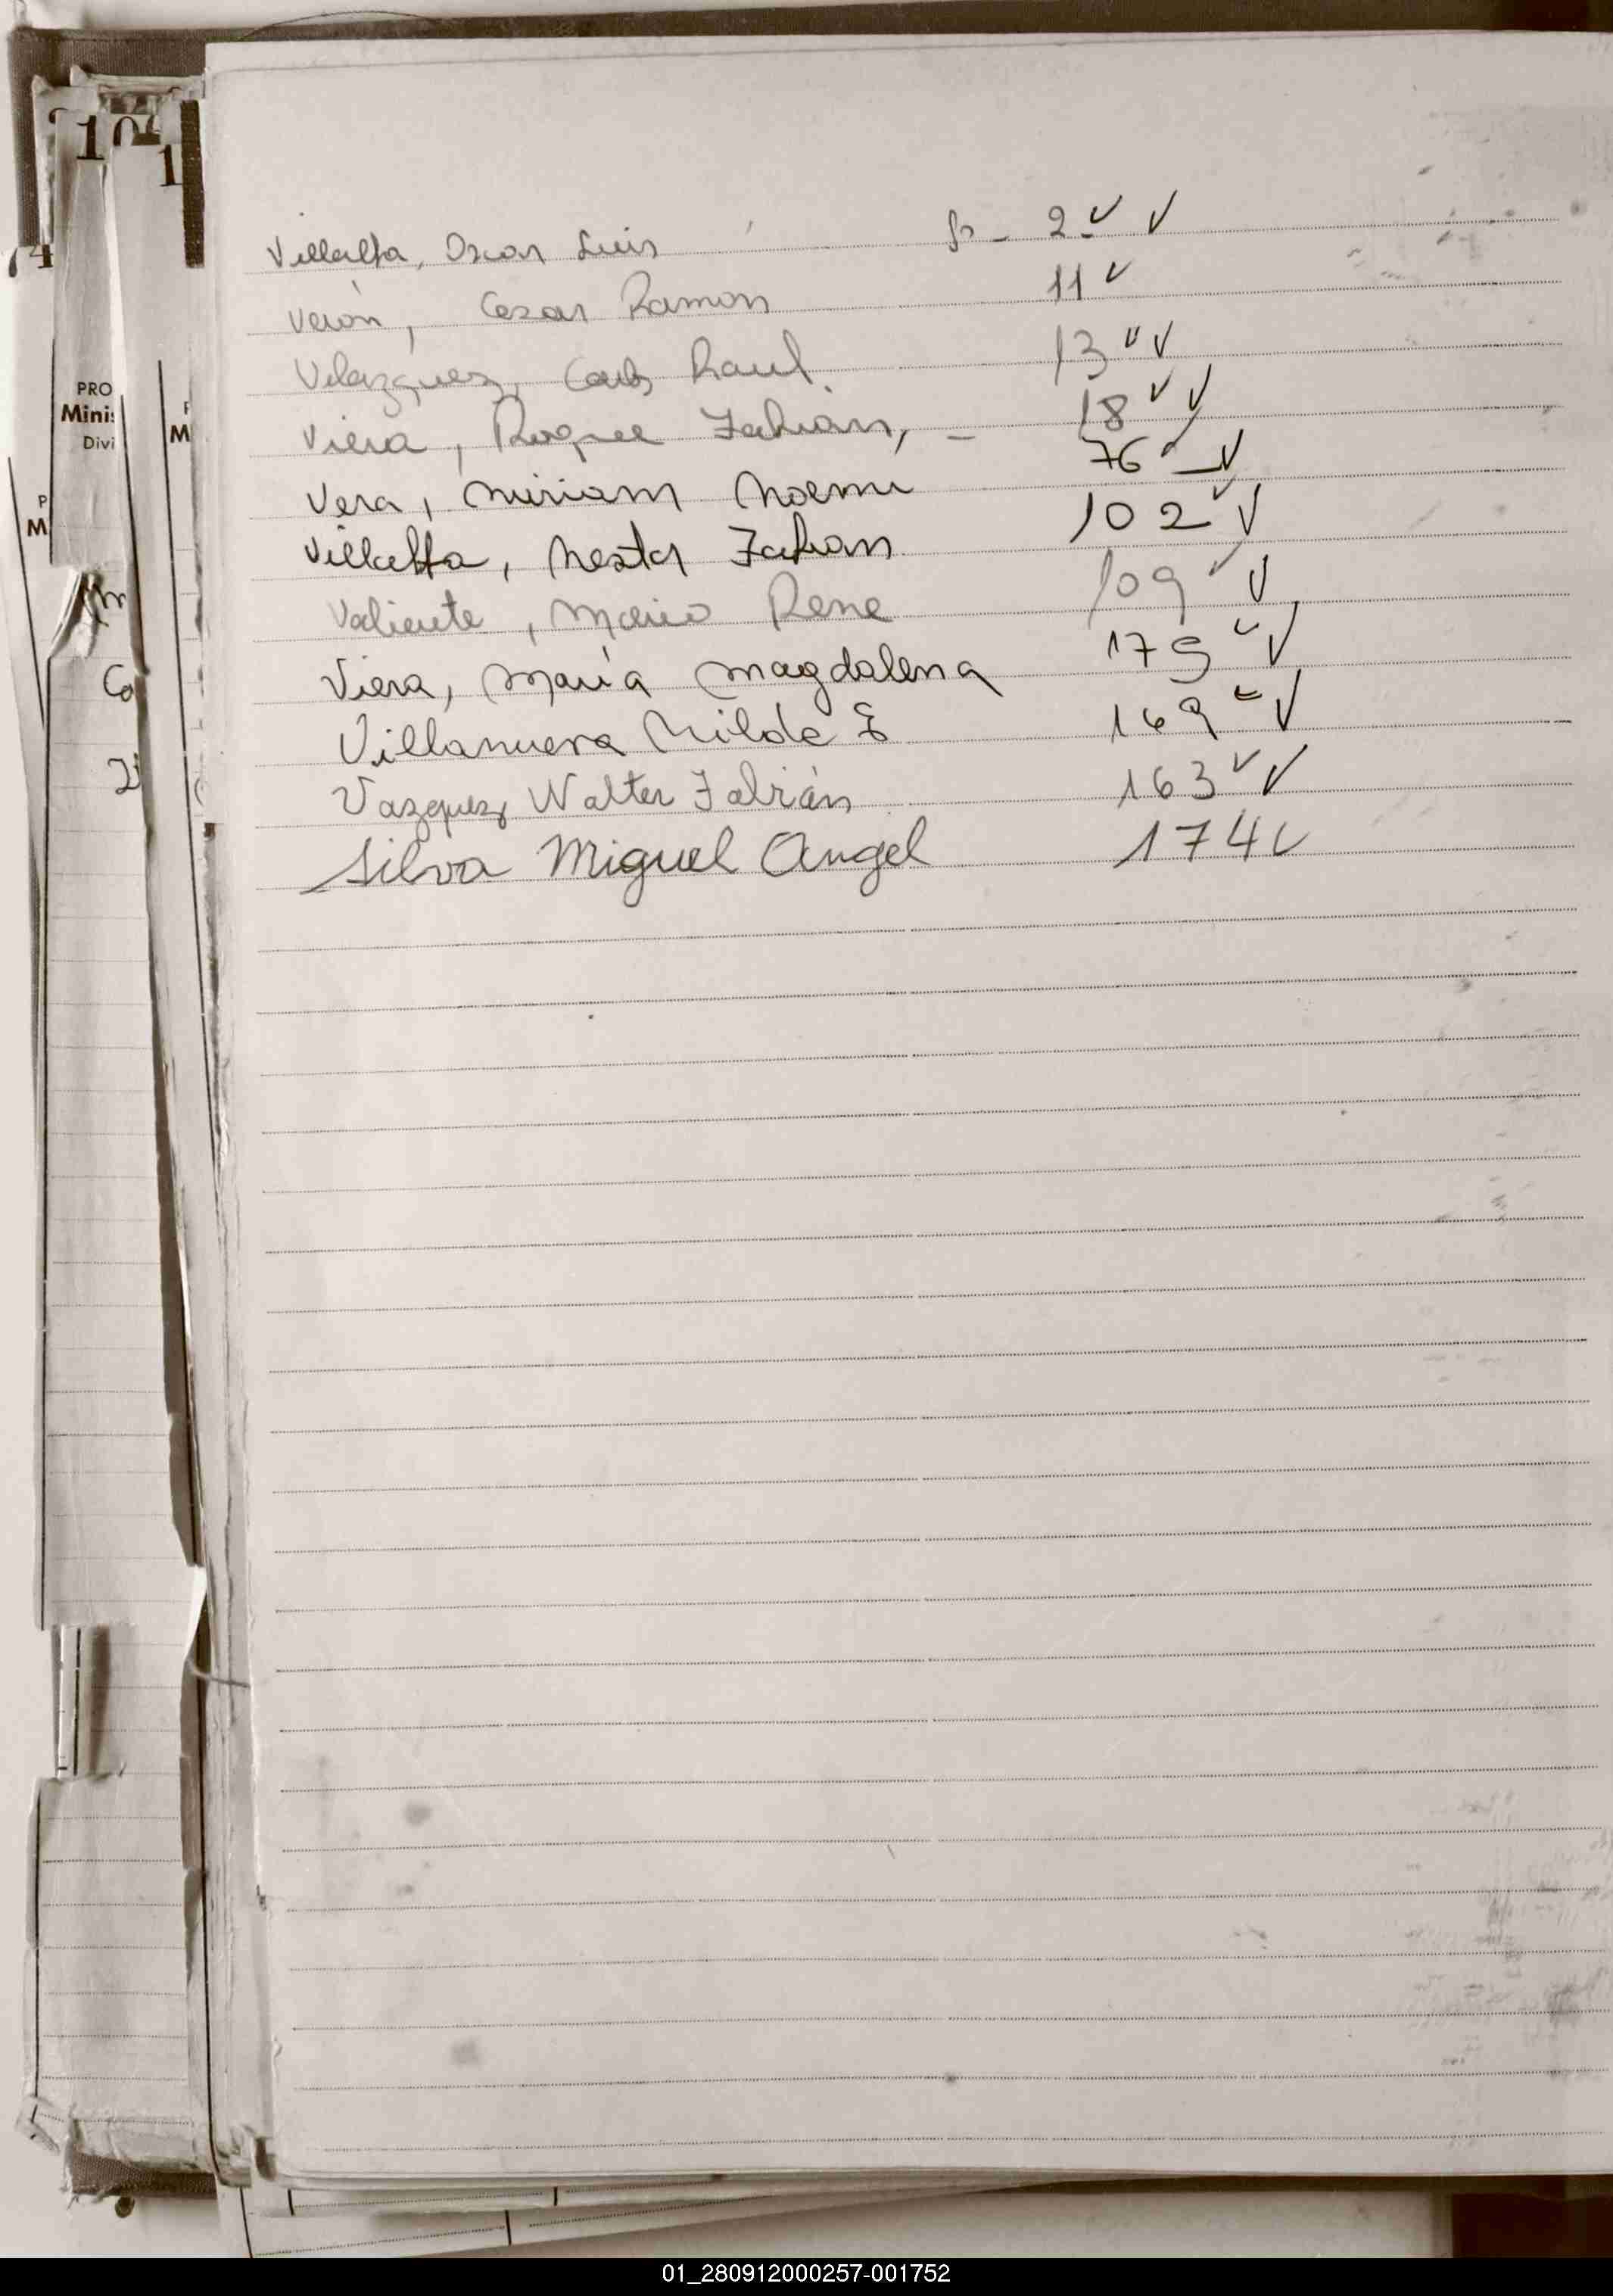 104
1
14
PRO
Minis
Divi
M
P
M
Co
Villalba, Oscar Luis fo - 2 ✓ ✓
Verón, Cesar Ramon 11 ✓
Velázquez, Carlos Raul. 13 ✓ ✓
Viera, Roque Fabián, - 18 ✓ ✓
Vera, Miriam Noemi 76 ✓ ✓
Villalba, Nestor Fabian 102 ✓ ✓
Valiente, Mario Rene 109 ✓ ✓
Viera, María Magdalena 179 ✓ ✓
Villanueva Nilda E 169 ✓ ✓
Vazquez, Walter Fabián 163 ✓ ✓
Silva Miguel Angel 174 ✓
01_280912000257-001752